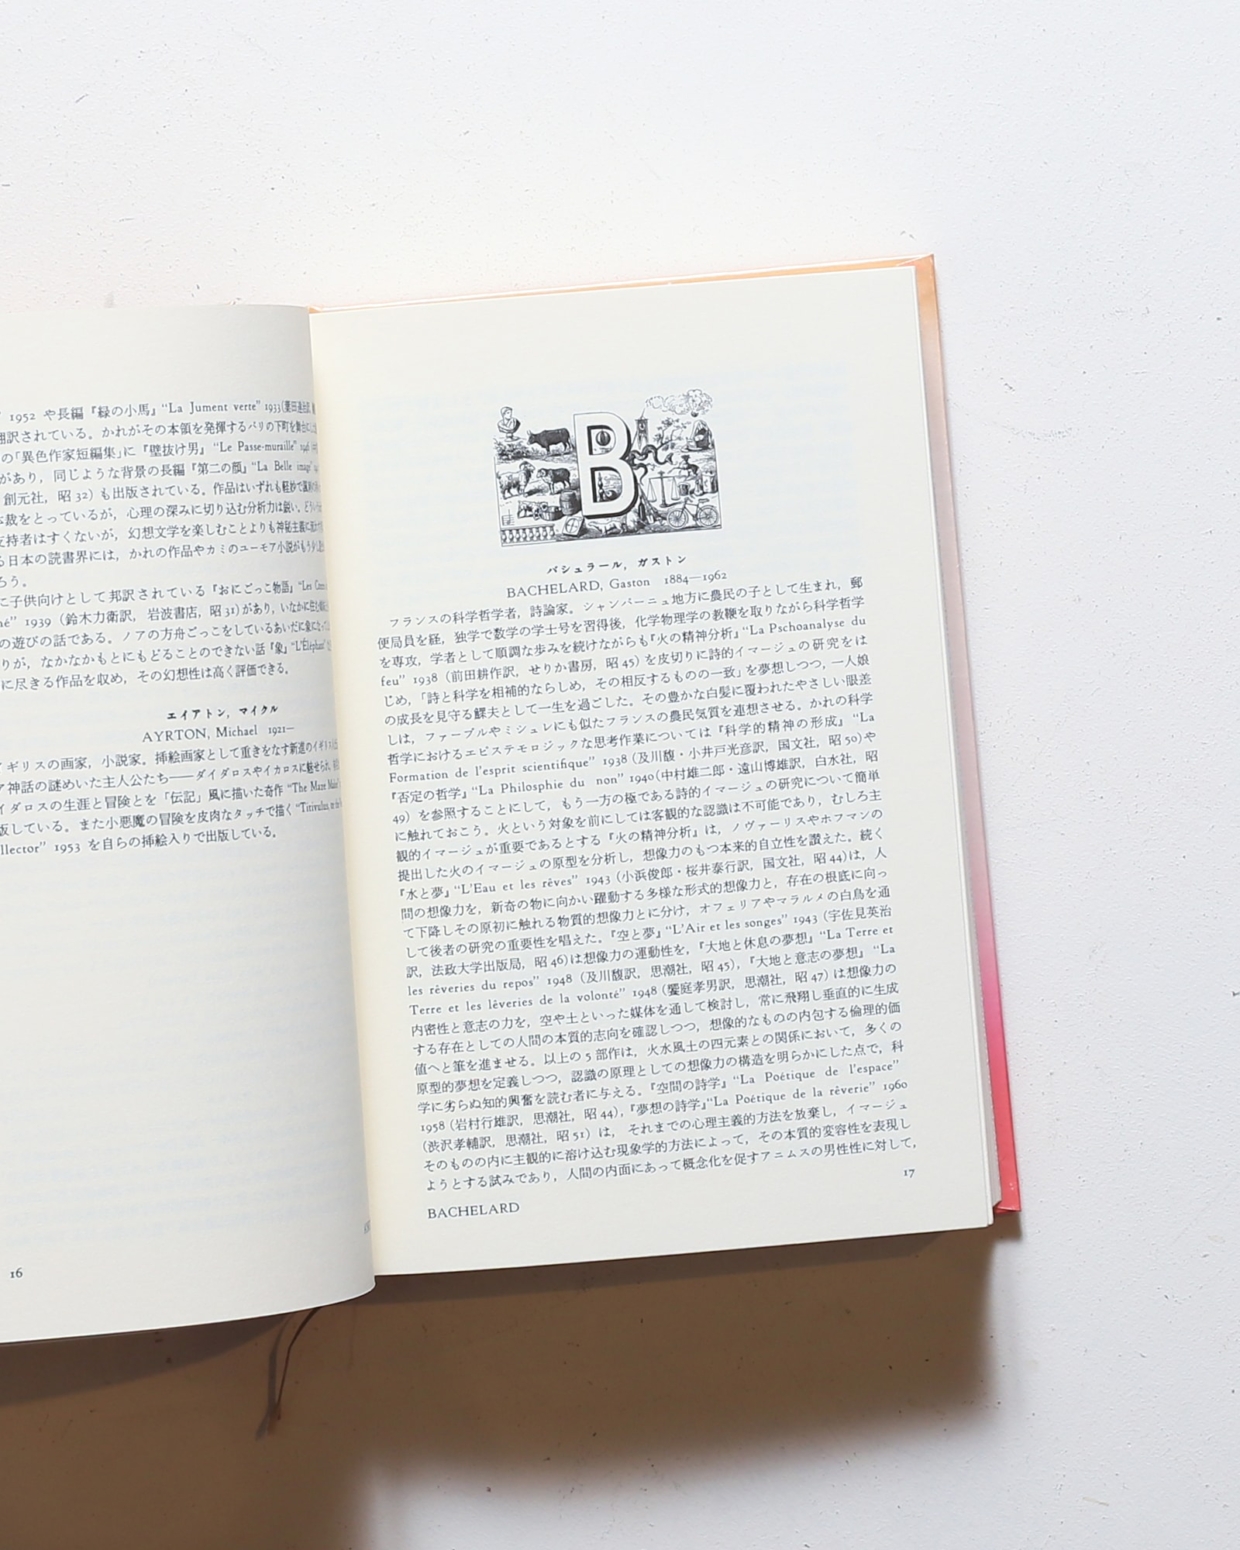 1952 や長編『緑の小馬』“La Jument verte” 1933
翻訳されている。かれがその本領を発揮するパリの下町を舞台に
の「異色作家短編集」に『壁抜け男』“Le Passe-muraille”
があり，同じような背景の長編『第二の顔』“La Belle image”
創元社，昭32）も出版されている。作品はいずれも軽妙で
裁をとっているが，心理の深みに切り込む分析力は鋭い。
支持者はすくないが，幻想文学を楽しむことよりも神秘主義に
る日本の読書界には，かれの作品やカミのユーモア小説がもう少し
ろう。
に子供向けとして邦訳されている『おにごっこ物語』“Les
1939（鈴木力衛訳，岩波書店，昭31）があり，いなかに住む
の遊びの話である。ノアの方舟ごっこをしているあいだに
りが，なかなかもとにもどることのできない話『象』“L'Éléphant”
に尽きる作品を収め，その幻想性は高く評価できる。
エイアトン，マイクル
AYRTON, Michael 1921—
ギリスの画家，小説家。挿絵画家として重きをなす新進のイギリス
ア神話の謎めいた主人公たち——ダイダロスやイカロスに魅せられ，
イダロスの生涯と冒険とを「伝記」風に描いた奇作 “The Maze Maker”
版している。また小悪魔の冒険を皮肉なタッチで描く “Titivulus,
llector” 1953 を自らの挿絵入りで出版している。
16
B
バシュラール，ガストン
BACHELARD, Gaston 1884—1962
フランスの科学哲学者，詩論家。シャンパーニュ地方に農民の子として生まれ，郵
便局員を経，独学で数学の学士号を習得後，化学物理学の教鞭を取りながら科学哲学
を専攻，学者として順調な歩みを続けながらも『火の精神分析』“La Pschoanalyse du
feu” 1938（前田耕作訳，せりか書房，昭45）を皮切りに詩的イマージュの研究をは
じめ，「詩と科学を相補的ならしめ，その相反するものの一致」を夢想しつつ，一人娘
の成長を見守る鰥夫として一生を過ごした。その豊かな白髪に覆われたやさしい眼差
しは，ファーブルやミシュレにも似たフランスの農民気質を連想させる。かれの科学
哲学におけるエピステモロジックな思考作業については『科学的精神の形成』“La
Formation de l'esprit scientifique” 1938（及川馥・小井戸光彦訳，国文社，昭50）や
『否定の哲学』“La Philosphie du non” 1940（中村雄二郎・遠山博雄訳，白水社，昭
49）を参照することにして，もう一方の極である詩的イマージュの研究について簡単
に触れておこう。火という対象を前にしては客観的な認識は不可能であり，むしろ主
観的イマージュが重要であるとする『火の精神分析』は，ノヴァーリスやホフマンの
提出した火のイマージュの原型を分析し，想像力のもつ本来的自立性を讃えた。続く
『水と夢』“L'Eau et les rêves” 1943（小浜俊郎・桜井泰行訳，国文社，昭44）は，人
間の想像力を，新奇の物に向かい躍動する多様な形式的想像力と，存在の根底に向っ
て下降しその原初に触れる物質的想像力とに分け，オフェリアやマラルメの白鳥を通
して後者の研究の重要性を唱えた。『空と夢』“L'Air et les songes” 1943（宇佐見英治
訳，法政大学出版局，昭46）は想像力の運動性を，『大地と休息の夢想』“La Terre et
les rêveries du repos” 1948（及川馥訳，思潮社，昭45），『大地と意志の夢想』“La
Terre et les lêveries de la volonté” 1948（饗庭孝男訳，思潮社，昭47）は想像力の
内密性と意志の力を，空や土といった媒体を通して検討し，常に飛翔し垂直的に生成
する存在としての人間の本質的志向を確認しつつ，想像的なものの内包する倫理的価
値へと筆を進ませる。以上の5部作は，火水風土の四元素との関係において，多くの
原型的夢想を定義しつつ，認識の原理としての想像力の構造を明らかにした点で，科
学に劣らぬ知的興奮を読む者に与える。『空間の詩学』“La Poétique de l'espace”
1958（岩村行雄訳，思潮社，昭44），『夢想の詩学』“La Poétique de la rêverie” 1960
（渋沢孝輔訳，思潮社，昭51）は，それまでの心理主義的方法を放棄し，イマージュ
そのものの内に主観的に溶け込む現象学的方法によって，その本質的変容性を表現し
ようとする試みであり，人間の内面にあって概念化を促すアニムスの男性性に対して，
17
BACHELARD